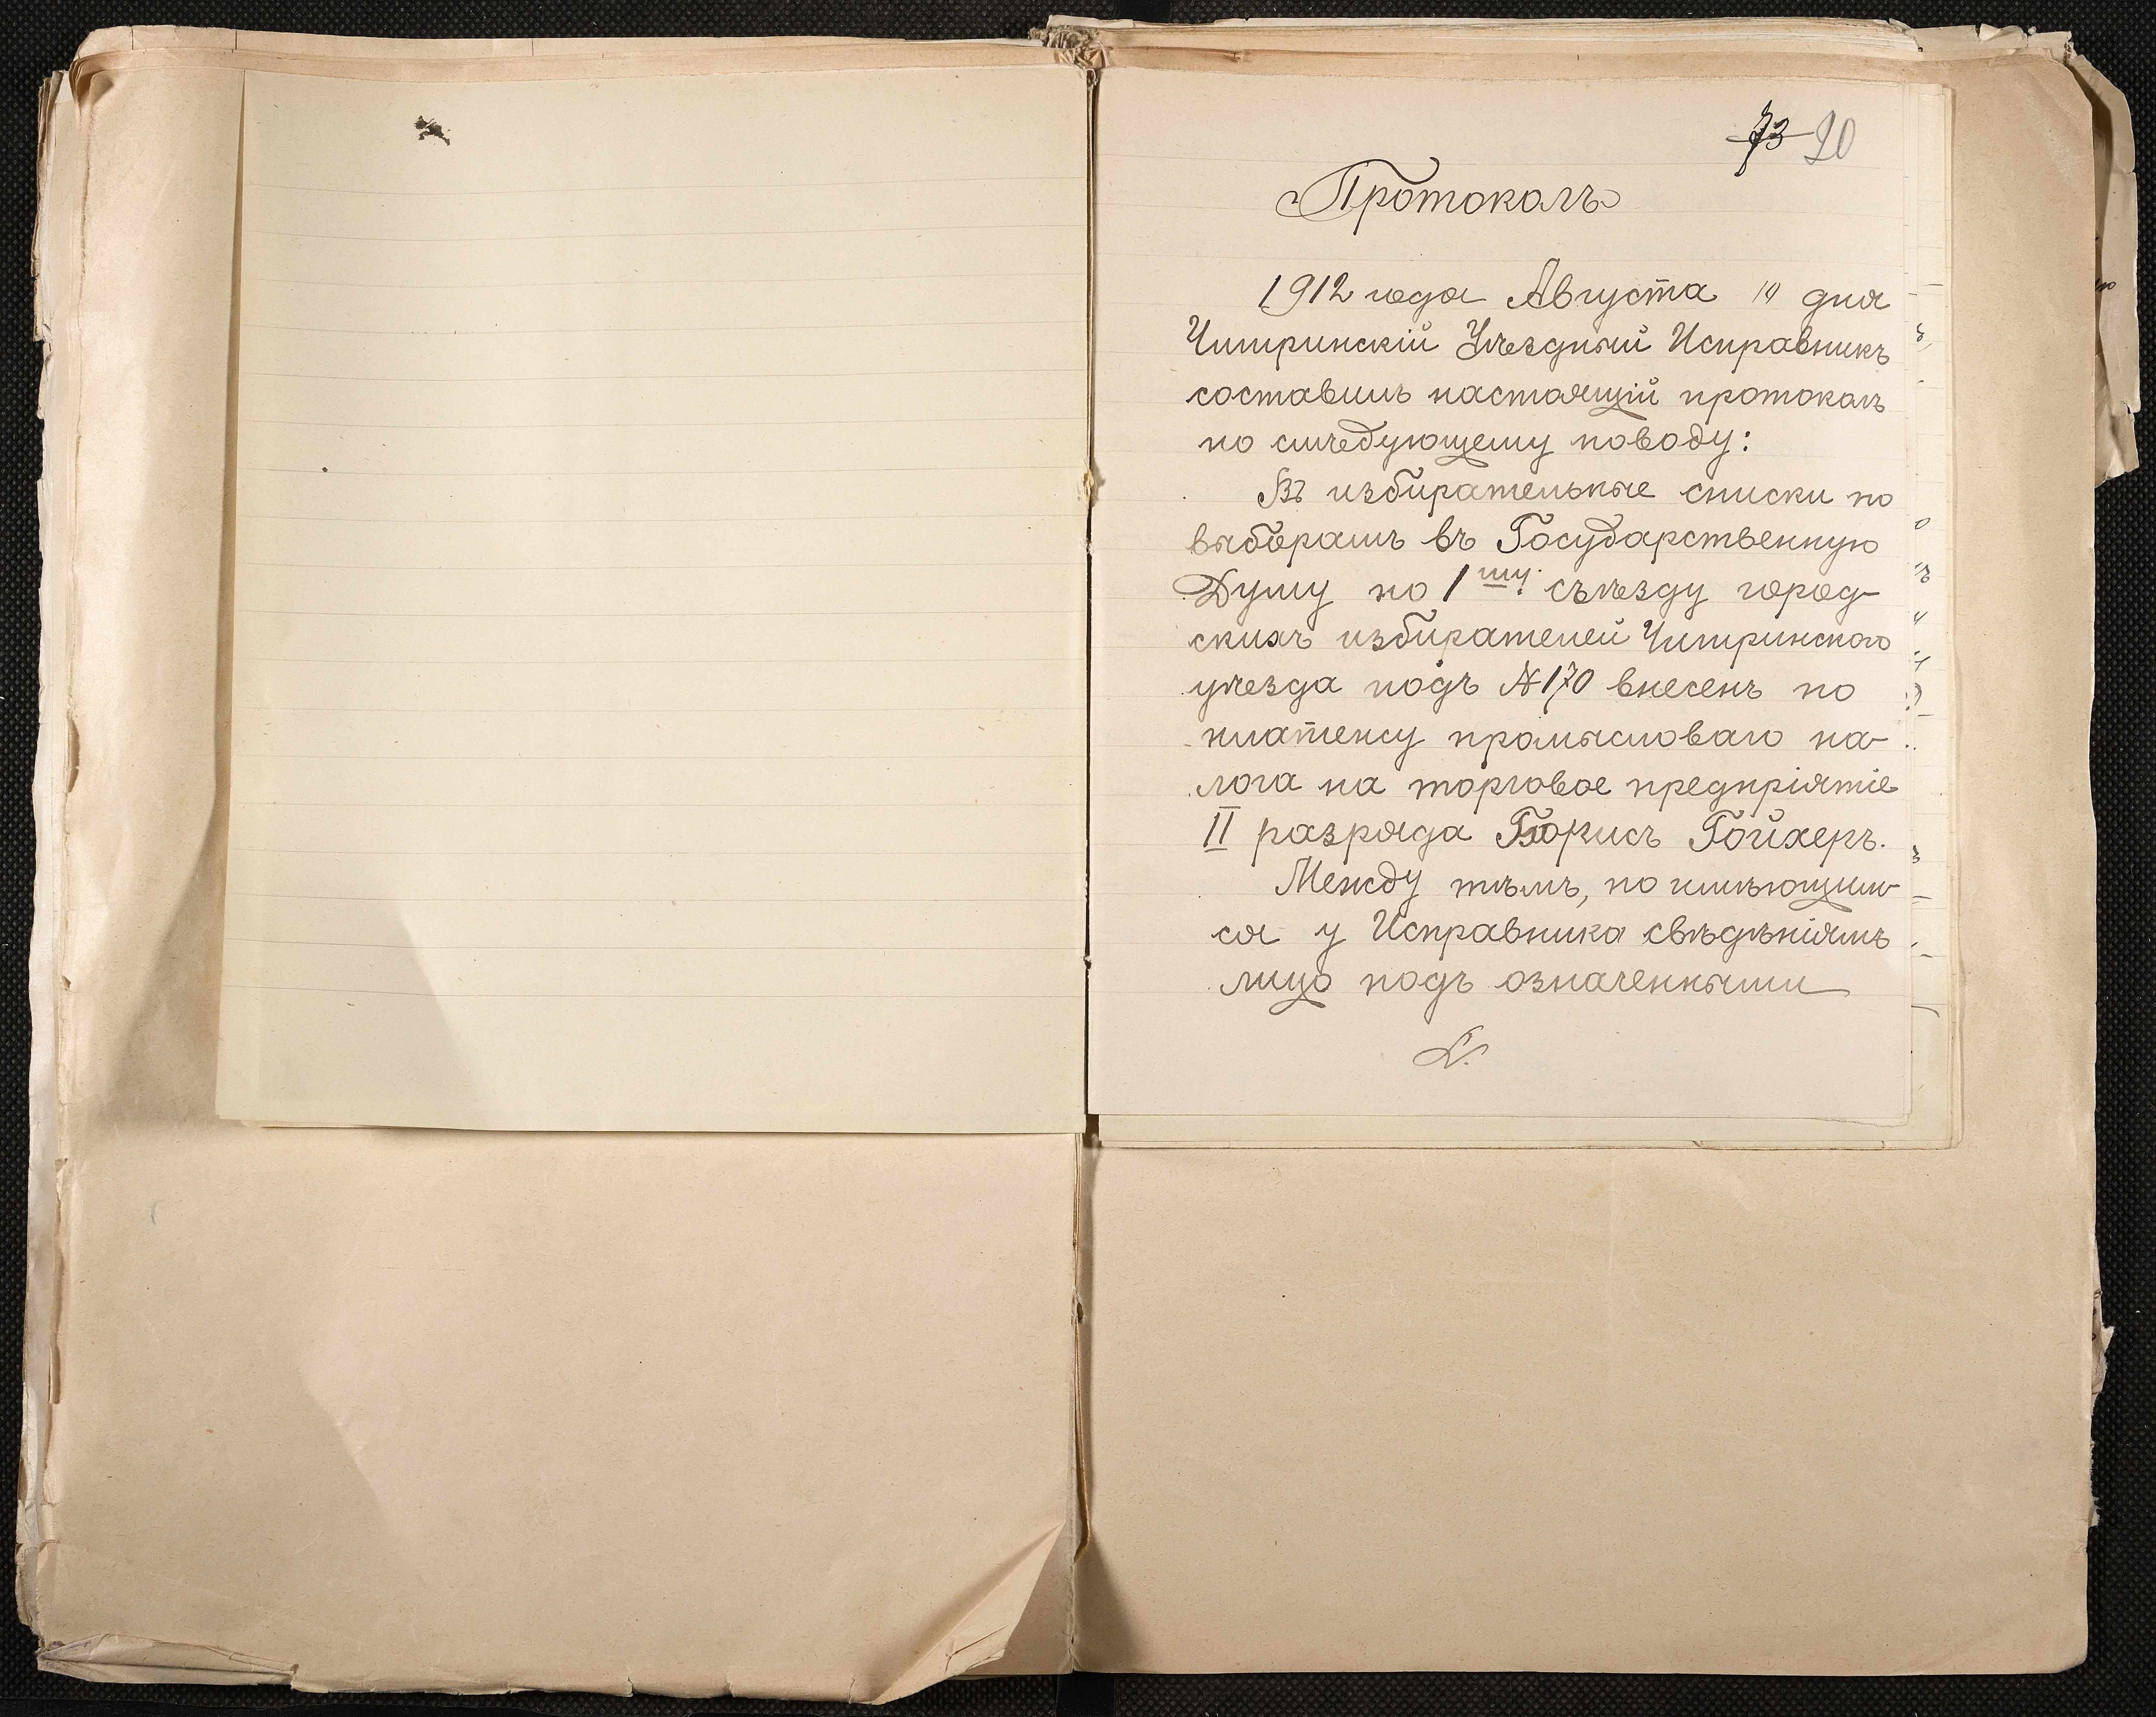 73 20
Протоколъ
1912 года Августа 14 дня
Чигиринскій Уѣздный Исправникъ
составилъ настоящій протоколъ
по слѣдующему поводу:
Въ избирательные списки по
выборамъ въ Государственную
Думу по 1му. съѣзду город-
скихъ избирателей Чигиринскаго
уѣзда подъ №170 внесенъ по
платежу промысловаго на-
лога на торговое предпріятіе
II разряда Борисъ Гойхеръ.
Между тѣмъ, по имѣющим-
ся у Исправника свѣдѣніямъ
лицо подъ означенными